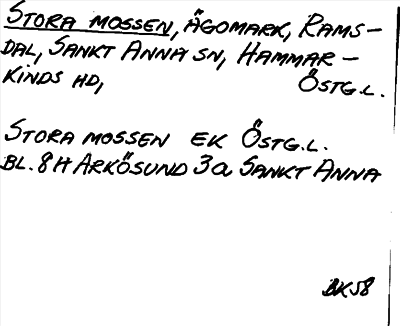 STORA MOSSEN, ÄGOMARK, RAMS-
DAL, SANKT ANNA SN, HAMMAR-
KINDS HD, ÖSTG.L.
STORA MOSSEN EK ÖSTG.L.
BL. 8H ARKÖSUND 3a SANKT ANNA
BK58